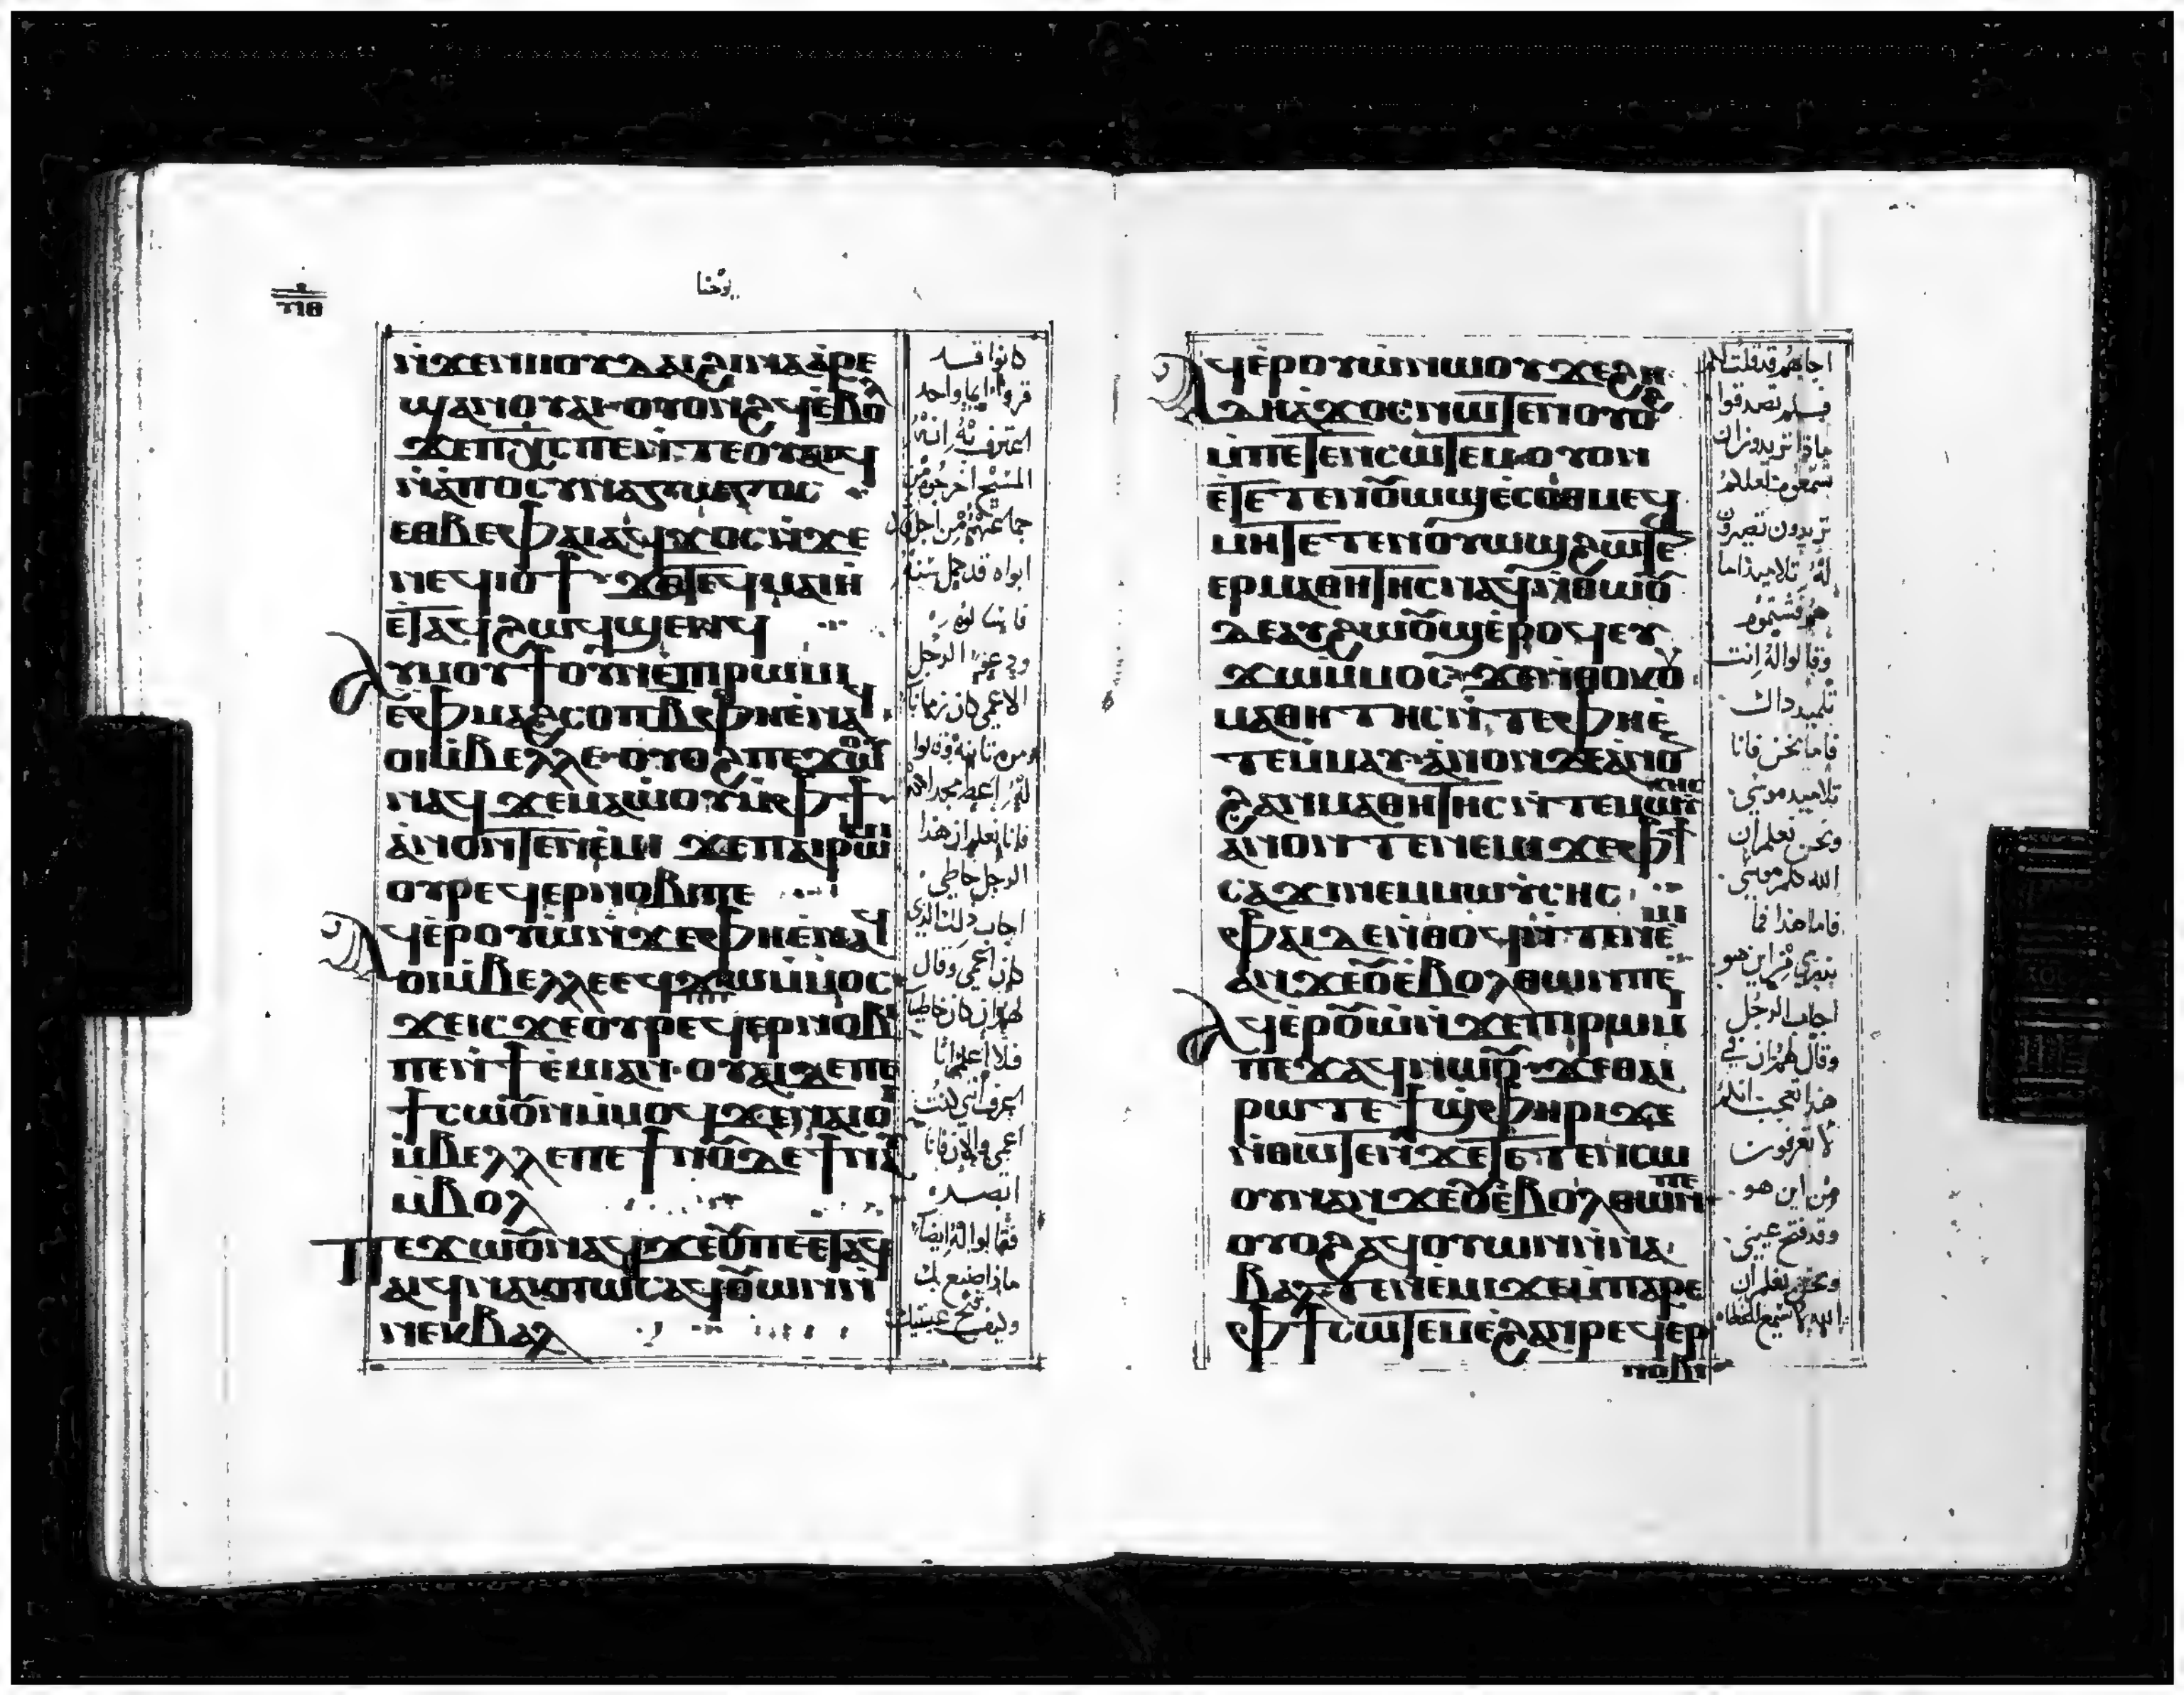 يوحنا
ⲛ̀ϫⲉⲛⲓⲓⲟⲩⲇⲁⲓϩⲓⲛⲁⲁⲣⲉ
ϣⲁⲛⲟⲩⲁⲓ·ⲟⲩⲟⲛϩϥⲉ̀ⲃⲟⲗ
ϫⲉⲡⲭ̅ⲥ̅ⲡⲉ
ⲉⲑⲃⲉⲫⲁⲓⲁϥϫⲟⲥⲛ̀ϫⲉ
ⲛⲉϥⲓⲟϯ
ⲉⲧⲁϥ
ⲁⲩⲙⲟⲩϯⲟⲩⲛⲉ̀ⲡⲓⲣⲱⲙⲓ
ⲉ̀ⲫⲙⲁϩⲥⲟⲡⲃ̅ⲫⲏⲉ̀ⲛⲁϥ
ⲟⲓⲙ̀ⲃⲉⲗⲗⲉ·ⲟⲩⲟϩⲡⲉϫⲱⲟⲩ
ⲛⲁϥϫⲉⲙⲁⲱⲟⲩⲙ̀ⲫϯ
ⲁ̀ⲛⲟⲛⲧⲉⲛⲉ̀ⲙⲓ ϫⲉⲡⲁⲓⲣⲱⲙⲓ
ⲟⲩⲣⲉϥⲉⲣⲛⲟⲃⲓⲡⲉ
ⲁϥⲉ̀ⲣⲟⲩⲱⲛ̀ϫⲉⲫⲏⲉ̀ⲛⲁϥ
ⲟⲓⲙ̀ⲃⲉⲗⲗⲉⲉϥϫⲱⲙ̀ⲙⲟⲥ
ϫⲉⲓⲥϫⲉⲟⲩⲣⲉϥⲉⲣⲛⲟⲃⲓ
ⲡⲉⲛ̀ϯⲉ̀ⲙⲓⲁⲛ·ⲟⲩⲁⲓⲇⲉⲡⲉ
ϯⲥⲱⲟⲩⲛⲙ̀ⲙⲟϥϫⲉⲛⲁⲓⲟ
ⲙ̀ⲃⲉⲗⲗⲉⲡⲉϯⲛⲟⲩⲇⲉϯⲛⲁⲩ
ⲙ̀ⲃⲟⲗ
ⲡⲉϫⲱⲟⲩⲛⲁϥϫⲉⲟⲩⲡⲉⲉⲧⲁϥ
ⲁⲓϥⲛⲁⲕⲡⲱⲥⲁϥⲟⲩⲱⲛⲛ̀
ⲛⲉⲕⲃⲁⲗ
كانوا قد
قرروا ايما واحد
اعترف به انه
المسيح اخرجوه من
جماعتهم من اجل
ابواه قد كمل سنه
فاسالوه
ودعوا الرجل
الاعمى كان زمانا
ومره ثانيه وقالوا
له اعط مجدا لله
فاننا نعلم ان هذا
الرجل خاطي
اجاب ذلك الذي
كان اعمى وقال
لهم ان كان خاطيا
فلا اعلم انا
اعرف اني كنت
اعمى والان فانا
ابصر
فقالوا له ايضا
ماذا صنع بك
وكيف فتح عينيك
ⲁϥⲉ̀ⲣⲟⲩⲱⲛⲱⲟⲩϫⲉϩⲏ
ⲇⲏⲁⲓϫⲟⲥⲛⲱⲧⲉⲛⲟⲩⲟϩ
ⲙ̀ⲡⲉⲧⲉⲛⲥⲱⲧⲉⲙ·ⲟⲩⲟⲛ
ⲉ̀ⲧⲉⲧⲉⲛⲟⲩⲱϣⲉ̀ⲥⲟⲑⲙⲉϥ
ⲙⲏⲧⲉⲧⲉⲛⲟⲩⲱϣϩⲱⲧⲉ
ⲉⲣⲙⲁⲑⲏⲧⲏⲥⲛⲁϥⲛ̀ⲑⲱⲟⲩ
ⲇⲉⲁⲩϩⲱⲟⲩϣⲉ̀ⲣⲟϥⲉⲩ
ϫⲱⲙ̀ⲙⲟⲥ·ϫⲉⲛ̀ⲑⲟⲕⲟⲩ
ⲙⲁⲑⲏⲧⲏⲥⲛ̀ⲧⲉⲫⲏⲉ̀
ⲧⲉⲙ̀ⲙⲁⲩ·ⲁ̀ⲛⲟⲛⲇⲉⲁⲛⲟⲛ
ϩⲁⲛⲙⲁⲑⲏⲧⲏⲥⲛ̀ⲧⲉⲙⲱⲩⲥⲏⲥ
ⲁ̀ⲛⲟⲛⲧⲉⲛⲉⲙⲓϫⲉⲫϯ
ⲥⲁϫⲓⲛⲉⲙⲙⲱⲩⲥⲏⲥ
ⲫⲁⲓⲇⲉⲛ̀ⲑⲟϥⲛ̀ⲧⲉⲛⲉ̀ⲙⲓ
ⲁⲛϫⲉⲟⲩⲉ̀ⲃⲟⲗⲑⲱⲛⲡⲉ
ⲁϥⲉ̀ⲣⲟⲩⲱⲛ̀ϫⲉⲡⲓⲣⲱⲙⲓ
ⲡⲉϫⲁϥⲛⲱⲟⲩ·ϫⲉⲑⲁⲓ
ⲣⲱⲧⲉϯϣⲫⲏⲣⲓϫⲉ
ⲛ̀ⲑⲱⲧⲉⲛϫⲉⲧⲉⲧⲉⲛⲥⲱ
ⲟⲩⲛⲁⲛϫⲉⲟⲩⲉ̀ⲃⲟⲗⲑⲱⲛⲡⲉ
ⲟⲩⲟϩⲁϥⲟⲩⲱⲛⲛ̀ⲛⲁ
ⲃⲁⲗⲧⲉⲛⲉⲙⲓϫⲉⲙ̀ⲡⲁⲣⲉ
ⲫϯⲥⲱⲧⲉⲙⲉ̀ϩⲁⲛⲣⲉϥⲉⲣ
ⲛⲟⲃⲓ
اجابهم قد قلت لكم
فلم تصدقوا
ماذا تريدون ان
تسمعون لعلكم
تريدون تصيرون
له تلاميذ اما
هم فشتموه
وقالوا له انت
تلميذ ذاك
فاما نحن فانا
تلاميذ موسى
ونحن نعلم ان
الله كلم موسى
فاما هذا فما
ندري من اين هو
اجاب الرجل
وقال لهم ان في
هذا لعجب انكم
لا تعرفون
من اين هو
وقد فتح عيني
ونحن نعلم ان
الله لا يسمع للخطاه